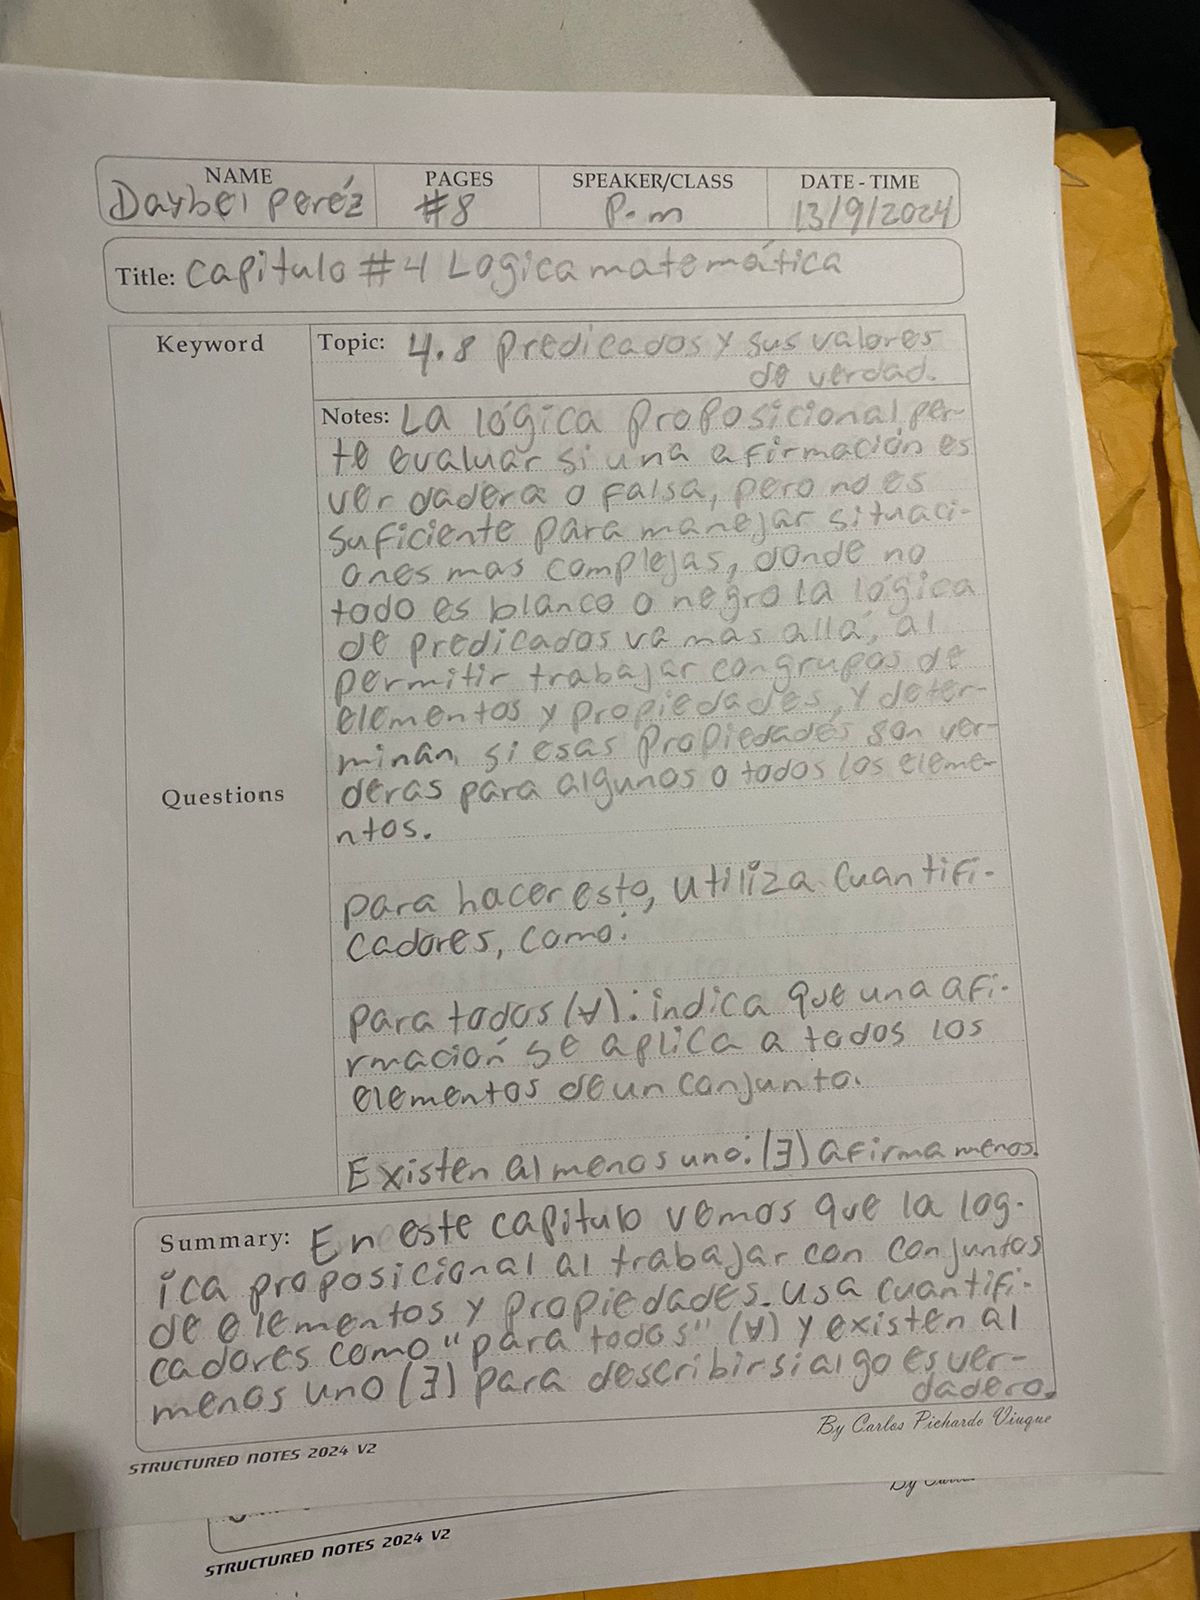 NAME PAGES SPEAKER/CLASS DATE - TIME
Daybel Peréz #8 P.m 13/9/2024
Title: Capitulo #4 Logica matemática
Keyword
Topic: 4.8 Predicados y sus valores
de verdad.
Notes: La lógica Proposicional, per-
te evaluar si una afirmación es
verdadera o falsa, pero no es
suficiente para manejar situaci-
ones mas complejas, donde no
todo es blanco o negro la lógica
de predicados va mas allá, al
permitir trabajar con grupos de
elementos y propiedades, y deter-
minan, si esas Propiedades son ver-
Questions
deras para algunos o todos los eleme-
ntos.
para hacer esto, utiliza cuantifi-
cadores, como:
para todos (∀): indica que una afi-
rmación se aplica a todos los
elementos de un conjunto.
Existen al menos uno: (∃) afirma menos.
Summary: En este capitulo vemos que la log-
ica proposicional al trabajar con conjuntos
de elementos y propiedades. usa cuantifi-
cadores como "para todos" (∀) y existen al
menos uno (∃) para describir si algo es ver-
dadero.
By Carlos Pichardo Viuque
STRUCTURED NOTES 2024 V2
STRUCTURED NOTES 2024 V2